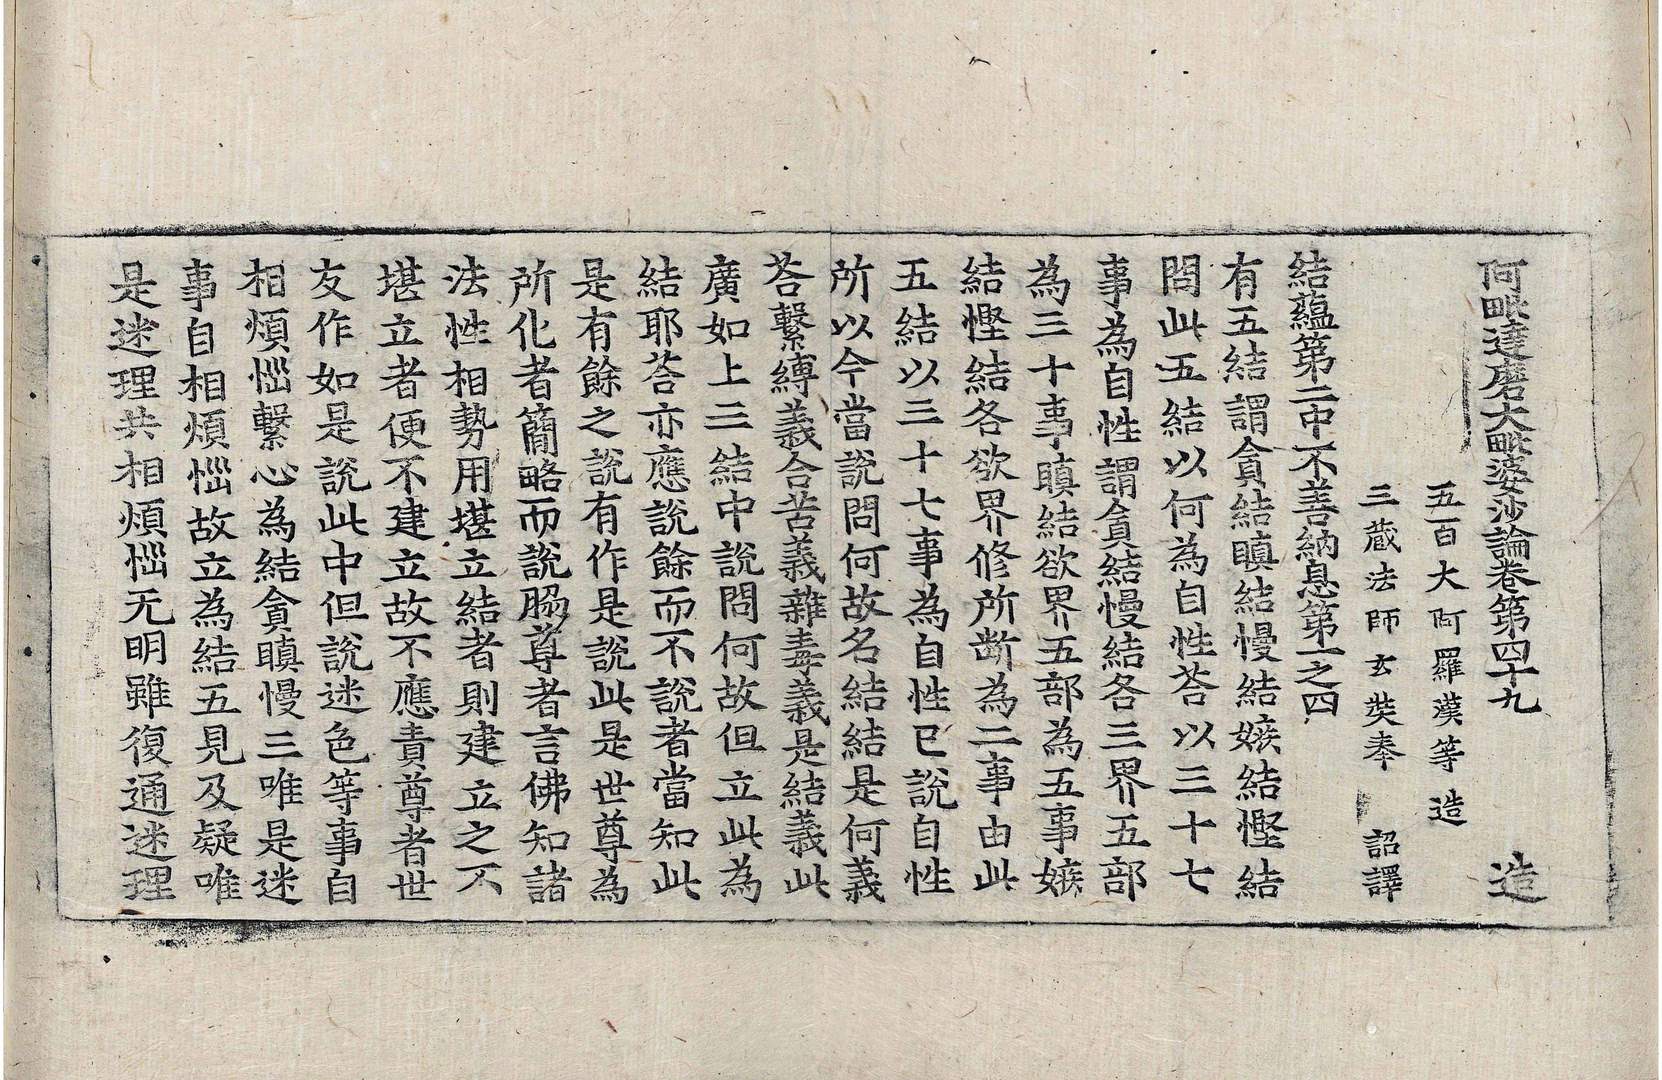 阿毗達磨大毗婆沙論卷第四十九 造
五百大阿羅漢等造
三藏法師玄奘奉 詔譯
結蘊第二中不善納息第一之四
有五結謂貪結瞋結慢結嫉結慳結
問此五結以何為自性荅以三十七
事為自性謂貪結慢結各三界五部
為三十事瞋結欲界五部為五事嫉
結慳結各欲界修所斷為二事由此
五結以三十七事為自性已說自性
所以今當說問何故名結結是何義
荅繫縛義合苦義雜毒義是結義此
廣如上三結中說問何故但立此為
結耶荅亦應說餘而不說者當知此
是有餘之說有作是說此是世尊為
所化者簡略而說脇尊者言佛知諸
法性相勢用堪立結者則建立之不
堪立者便不建立故不應責尊者世
友作如是說此中但說迷色等事自
相煩惱繫心為結貪瞋慢三唯是迷
事自相煩惱故立為結五見及疑唯
是迷理共相煩惱无明雖復通迷理